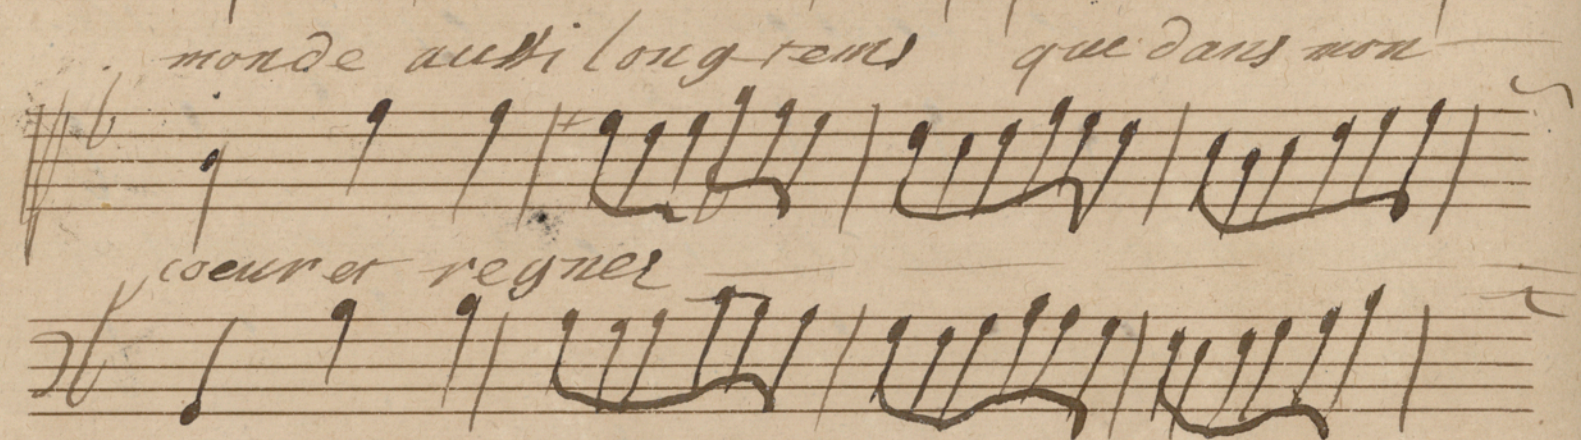 monde aussi longtems que dans mon
coeur et regner